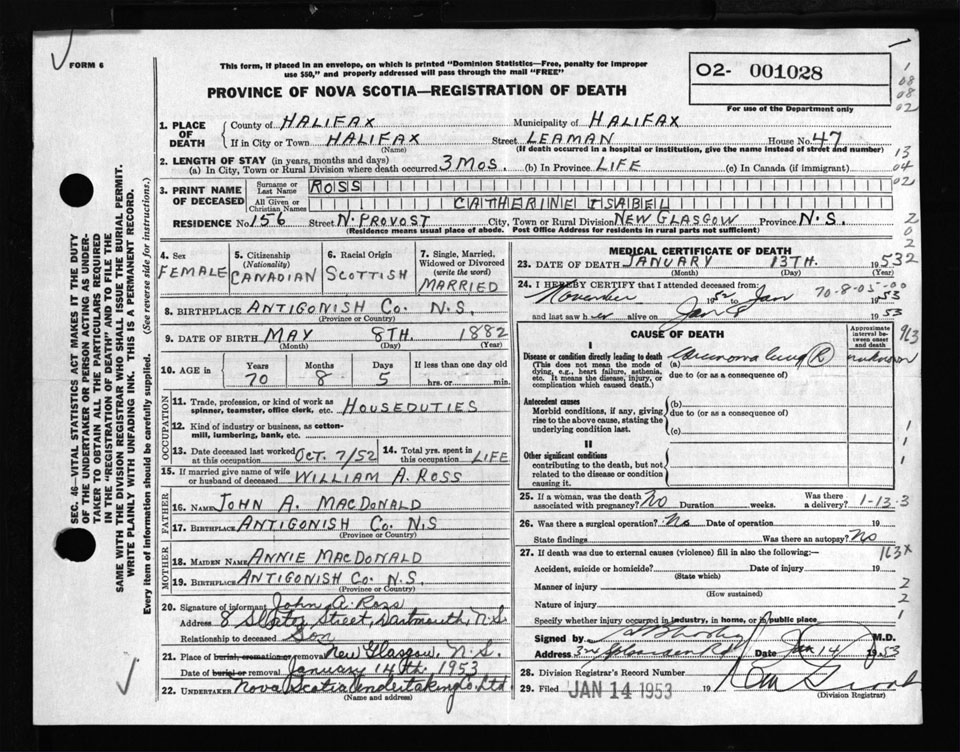 FORM 6
This form, if placed in an envelope, on which is printed "Dominion Statistics—Free, penalty for improper
use $50," and properly addressed will pass through the mail "FREE"
PROVINCE OF NOVA SCOTIA—REGISTRATION OF DEATH
02- 001028
For use of the Department only
1. PLACE OF DEATH { County of HALIFAX Municipality of HALIFAX
If in City or Town HALIFAX Street LEAMAN House No. 47
(Name) (If death occurred in a hospital or institution, give the name instead of street and number)
2. LENGTH OF STAY (in years, months and days)
(a) In City, Town or Rural Division where death occurred 3 MOS. (b) In Province LIFE (c) In Canada (if immigrant)
3. PRINT NAME OF DECEASED { Surname or Last Name ROSS
All Given or Christian Names CATHERINE ISABEL
RESIDENCE No. 156 Street N. PROVOST City, Town or Rural Division NEW GLASGOW Province N.S.
(Residence means usual place of abode. Post Office Address for residents in rural parts not sufficient)
1
08
08
02
13
04
02
2
0
2
SEC. 46—VITAL STATISTICS ACT MAKES IT THE DUTY
OF THE UNDERTAKER OR PERSON ACTING AS UNDER-
TAKER TO OBTAIN ALL THE PARTICULARS REQUIRED
IN THE "REGISTRATION OF DEATH" AND TO FILE THE
SAME WITH THE DIVISION REGISTRAR WHO SHALL ISSUE THE BURIAL PERMIT.
WRITE PLAINLY WITH UNFADING INK. THIS IS A PERMANENT RECORD.
Every item of information should be carefully supplied. (See reverse side for instructions.)
4. Sex FEMALE
5. Citizenship (Nationality) CANADIAN
6. Racial Origin SCOTTISH
7. Single, Married, Widowed or Divorced (write the word) MARRIED
8. BIRTHPLACE ANTIGONISH CO. N.S.
(Province or Country)
9. DATE OF BIRTH MAY 8TH. 1882
(Month) (Day) (Year)
10. AGE in { Years 70 Months 8 Days 5 If less than one day old
hrs. or min.
OCCUPATION
11. Trade, profession, or kind of work as
spinner, teamster, office clerk, etc. HOUSEDUTIES
12. Kind of industry or business, as cotton-
mill, lumbering, bank, etc.
13. Date deceased last worked at this occupation OCT. 7/52 14. Total yrs. spent in this occupation LIFE
15. If married give name of wife
or husband of deceased WILLIAM A. ROSS
FATHER
16. NAME JOHN A. MACDONALD
17. BIRTHPLACE ANTIGONISH CO. N.S
(Province or Country)
MOTHER
18. MAIDEN NAME ANNIE MACDONALD
19. BIRTHPLACE ANTIGONISH CO. N.S.
(Province or Country)
20. Signature of informant John A. Ross
Address 8 Slater Street, Dartmouth, N.S.
Relationship to deceased Son
21. Place of burial, cremation or removal New Glasgow, N.S.
Date of burial or removal January 14th. 1953
22. UNDERTAKER Nova Scotia Undertaking Co Ltd.
(Name and address)
MEDICAL CERTIFICATE OF DEATH
23. DATE OF DEATH JANUARY 13TH. 1953 2
(Month) (Day) (Year)
24. I HEREBY CERTIFY that I attended deceased from: 70-8-05-00
November 1952 to Jan 1953
and last saw her alive on Jan 8 1953
CAUSE OF DEATH
Approximate interval between onset and death
I
Disease or condition directly leading to death (a) Carcinoma lung (R) unknown
(This does not mean the mode of dying, e.g., heart failure, asthenia, etc. It means the disease, injury, or complication which caused death.)
due to (or as a consequence of)
Antecedent causes
Morbid conditions, if any, giving rise to the above cause, stating the underlying condition last.
(b)
due to (or as a consequence of)
(c)
II
Other significant conditions
contributing to the death, but not related to the disease or condition causing it.
913
1
1
25. If a woman, was the death associated with pregnancy? No Duration weeks. Was there a delivery? 1-13-3
26. Was there surgical operation? No Date of operation 19
State findings Was there an autopsy? No
27. If death was due to external causes (violence) fill in also the following:—
163X
Accident, suicide or homicide? Date of injury 19
(State which)
Manner of injury 2
(How sustained)
Nature of injury 2
Specify whether injury occurred in industry, in home, or in public place 1
Signed by M.D.
Address Date Jan 14 1953
28. Division Registrar's Record Number
29. Filed JAN 14 1953 19
(Division Registrar)